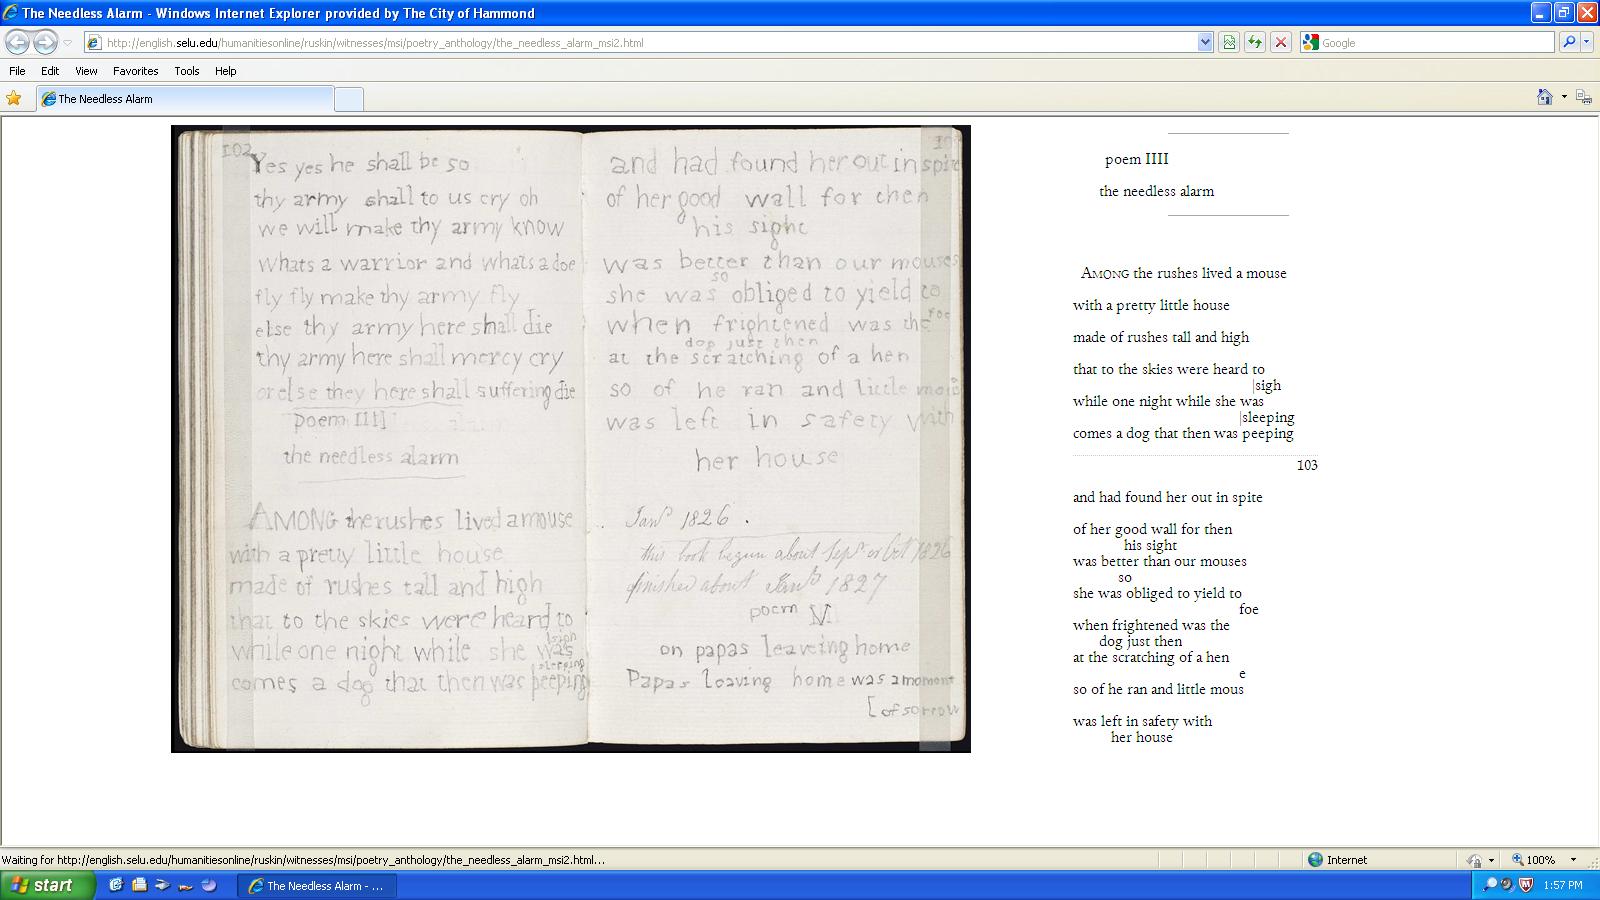 The Needless Alarm - Windows Internet Explorer provided by The City of Hammond
http://english.selu.edu/humanitiesonline/ruskin/witnesses/msi/poetry_anthology/the_needless_alarm_msi2.html
Google
File Edit View Favorites Tools Help
The Needless Alarm
102
Yes yes he shall be so
thy army shall to us cry oh
we will make thy army know
whats a warrior and whats a doe
fly fly make thy army fly
else thy army here shall die
thy army here shall mercy cry
or else they here shall suffering die
poem IIII
the needless alarm
AMONG the rushes lived a mouse
with a pretty little house
made of rushes tall and high
that to the skies were heard to
|sigh
while one night while she was
sleeping
comes a dog that then was peeping
and had found her out in spite
of her good wall for then
his sight
was better than our mouses
so
she was obliged to yield to
foe
when frightened was the
dog just then
at the scratching of a hen
so of he ran and little mouse
was left in safety with
her house
Jany 1826.
this book begun about Sept or Oct 1826
finished about Jany 1827
poem
on papas leaveing home
Papas leaving home was a moment
[of sorrow
poem IIII
the needless alarm
AMONG the rushes lived a mouse
with a pretty little house
made of rushes tall and high
that to the skies were heard to
|sigh
while one night while she was
|sleeping
comes a dog that then was peeping
103
and had found her out in spite
of her good wall for then
his sight
was better than our mouses
so
she was obliged to yield to
foe
when frightened was the
dog just then
at the scratching of a hen
e
so of he ran and little mous
was left in safety with
her house
Waiting for http://english.selu.edu/humanitiesonline/ruskin/witnesses/msi/poetry_anthology/the_needless_alarm_msi2.html...
Internet
100%
start
The Needless Alarm - ...
1:57 PM